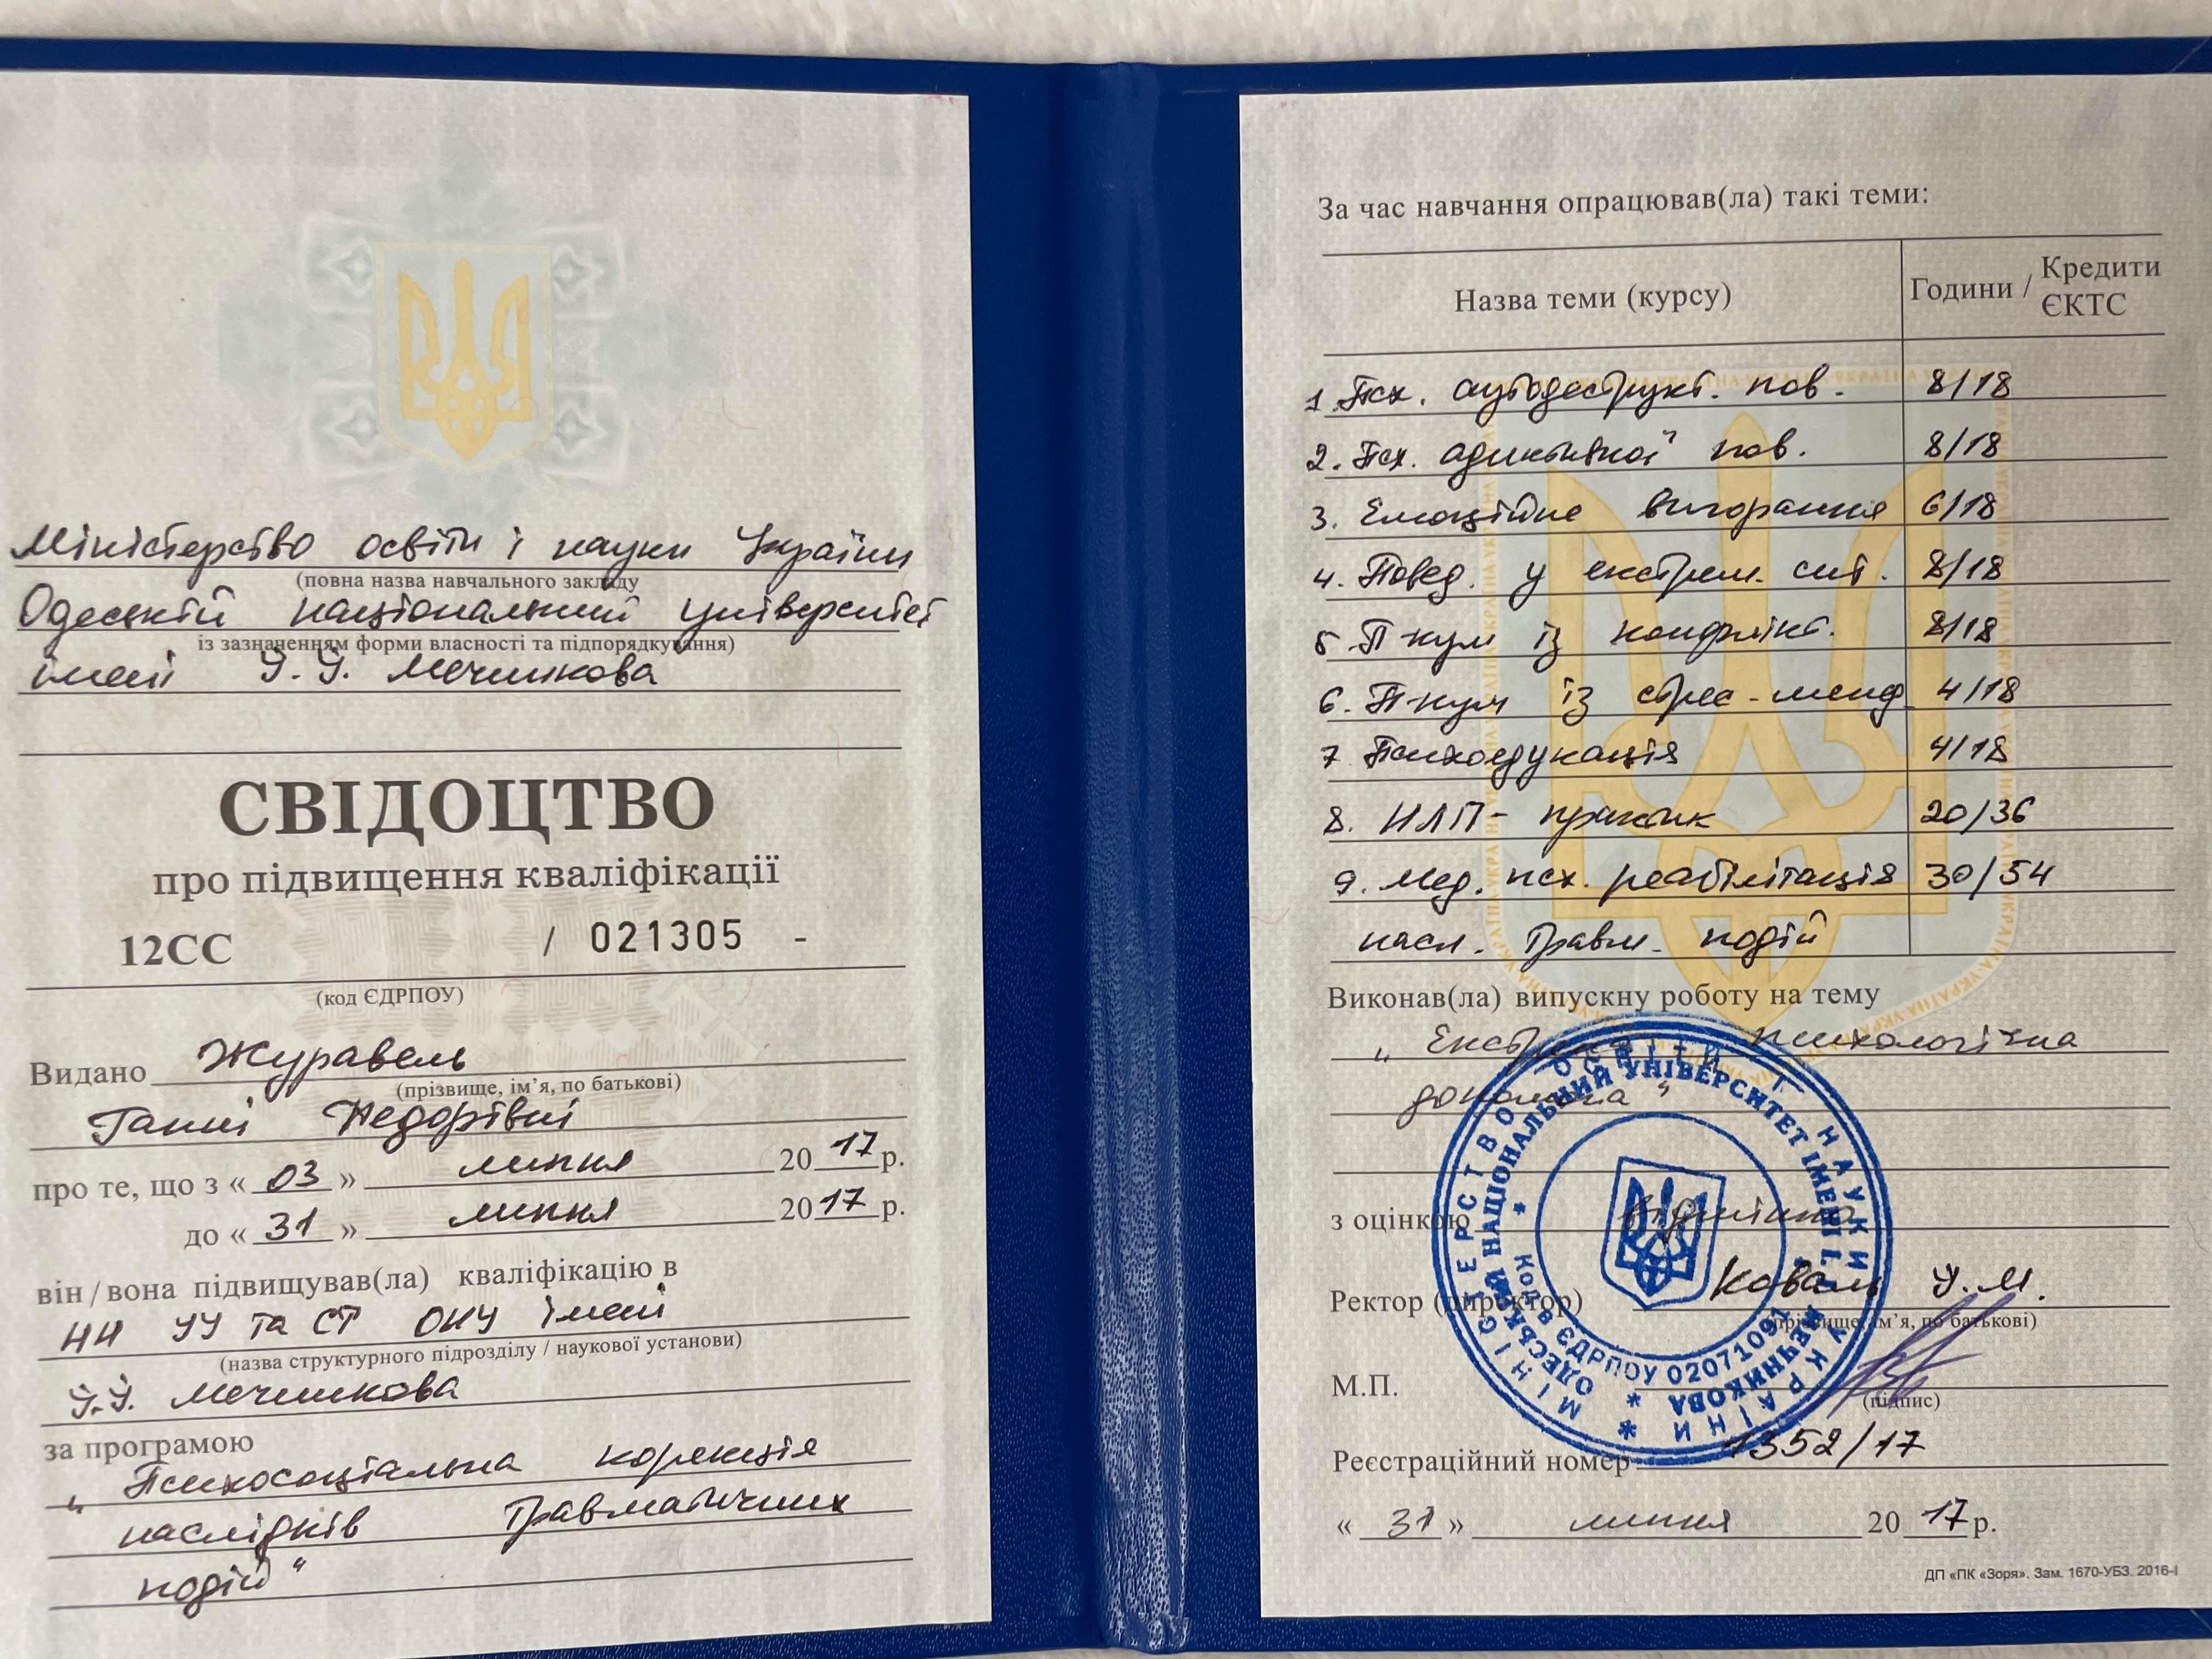 Міністерство освіти і науки України
(повна назва навчального закладу
Одеський національний університет
із зазначенням форми власності та підпорядкування)
імені І.І. Мечникова
СВІДОЦТВО
про підвищення кваліфікації
12СС / 021305 -
(код ЄДРПОУ)
Видано Журавель
(прізвище, ім’я, по батькові)
Ганні
про те, що з « 03 » липня 2017 р.
до « 31 » липня 2017 р.
він / вона підвищував(ла) кваліфікацію в
НН ІІ та СТ ОНУ імені
(назва структурного підрозділу / наукової установи)
І.І. Мечникова
за програмою
„ Психосоціальна корекція
наслідків травматичних
подій “
За час навчання опрацював(ла) такі теми:
Назва теми (курсу) Години / Кредити ЄКТС
1. Псх. аутодеструкт. пов. 8/18
2. Псх. адиктивної пов. 8/18
3. Емоційне вигорання 6/18
4. Повед. у екстрем. сит. 8/18
5. П-кум із конфлікт. 8/18
6. П-кум із стрес-менд. 4/18
7 Психоедукація 4/18
8. НЛП- практик 20/36
9. Мед. псх. реабілітація 30/54
насл. травм. подій
Виконав(ла) випускну роботу на тему
„ Екстрена психологічна
допомога “
з оцінкою відмінно
Ректор (директор) Коваль І.М.
(прізвище, ім’я, по батькові)
М.П.
(підпис)
Реєстраційний номер 1352/17
« 31 » липня 2017 р.
ДП «ПК «Зоря». Зам. 1670-УБЗ. 2016-І
МІНІСТЕРСТВО ОСВІТИ І НАУКИ УКРАЇНИ
ОДЕСЬКИЙ НАЦІОНАЛЬНИЙ УНІВЕРСИТЕТ ІМЕНІ І.І. МЕЧНИКОВА
Код в ЄДРПОУ 02071091